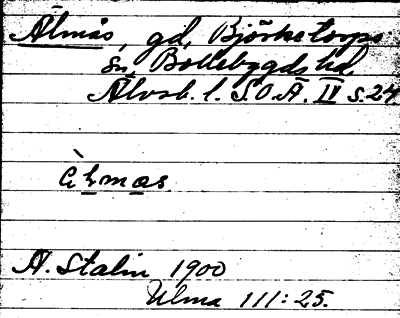 Älmås, gd, Björketorps
sn, Bollebygds hd,
Älvsb. l. S.O.Ä. IV s. 24
A. Stalin 1900
Ulma 111:25.